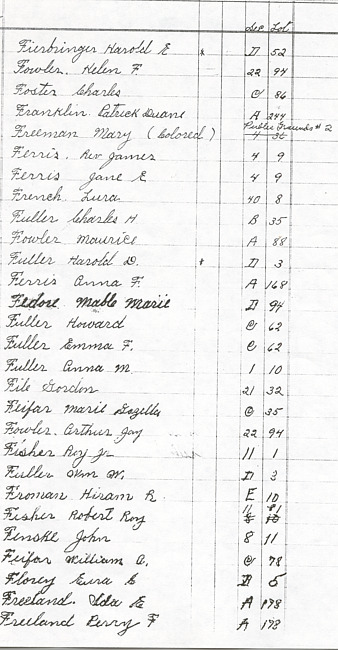 Sec Lot
Fierbringer Harold E * D 52
Fowler, Helen F 22 94
Foster Charles C 86
Franklin Patrick Duane A 244
Freeman Mary (Colored) Public Grounds #2 4 36
Ferris, Rev James 4 9
Ferris Jane E 4 9
French Lura 40 8
Fuller Charles H B 35
Fowler Maurice A 88
Fuller Harold D. * D 3
Ferris Anna F. A 168
Fedore Mable Marie D 94
Fuller Howard C 62
Fuller Emma F. C 62
Fuller Anna M. 1 10
File Gordon 21 32
Feifar Marie Gozella C 35
Fowler, Arthur Jay 22 94
Fisher Roy Jr 11 1
Fuller Wm W. D 3
Froman Hiram R. E 10
Fisher Robert Roy 11 1
Finske John 8 11
Feifar William A. C 78
Florey Eura E D 5
Freeland Ida E A 178
Freeland Perry F A 178